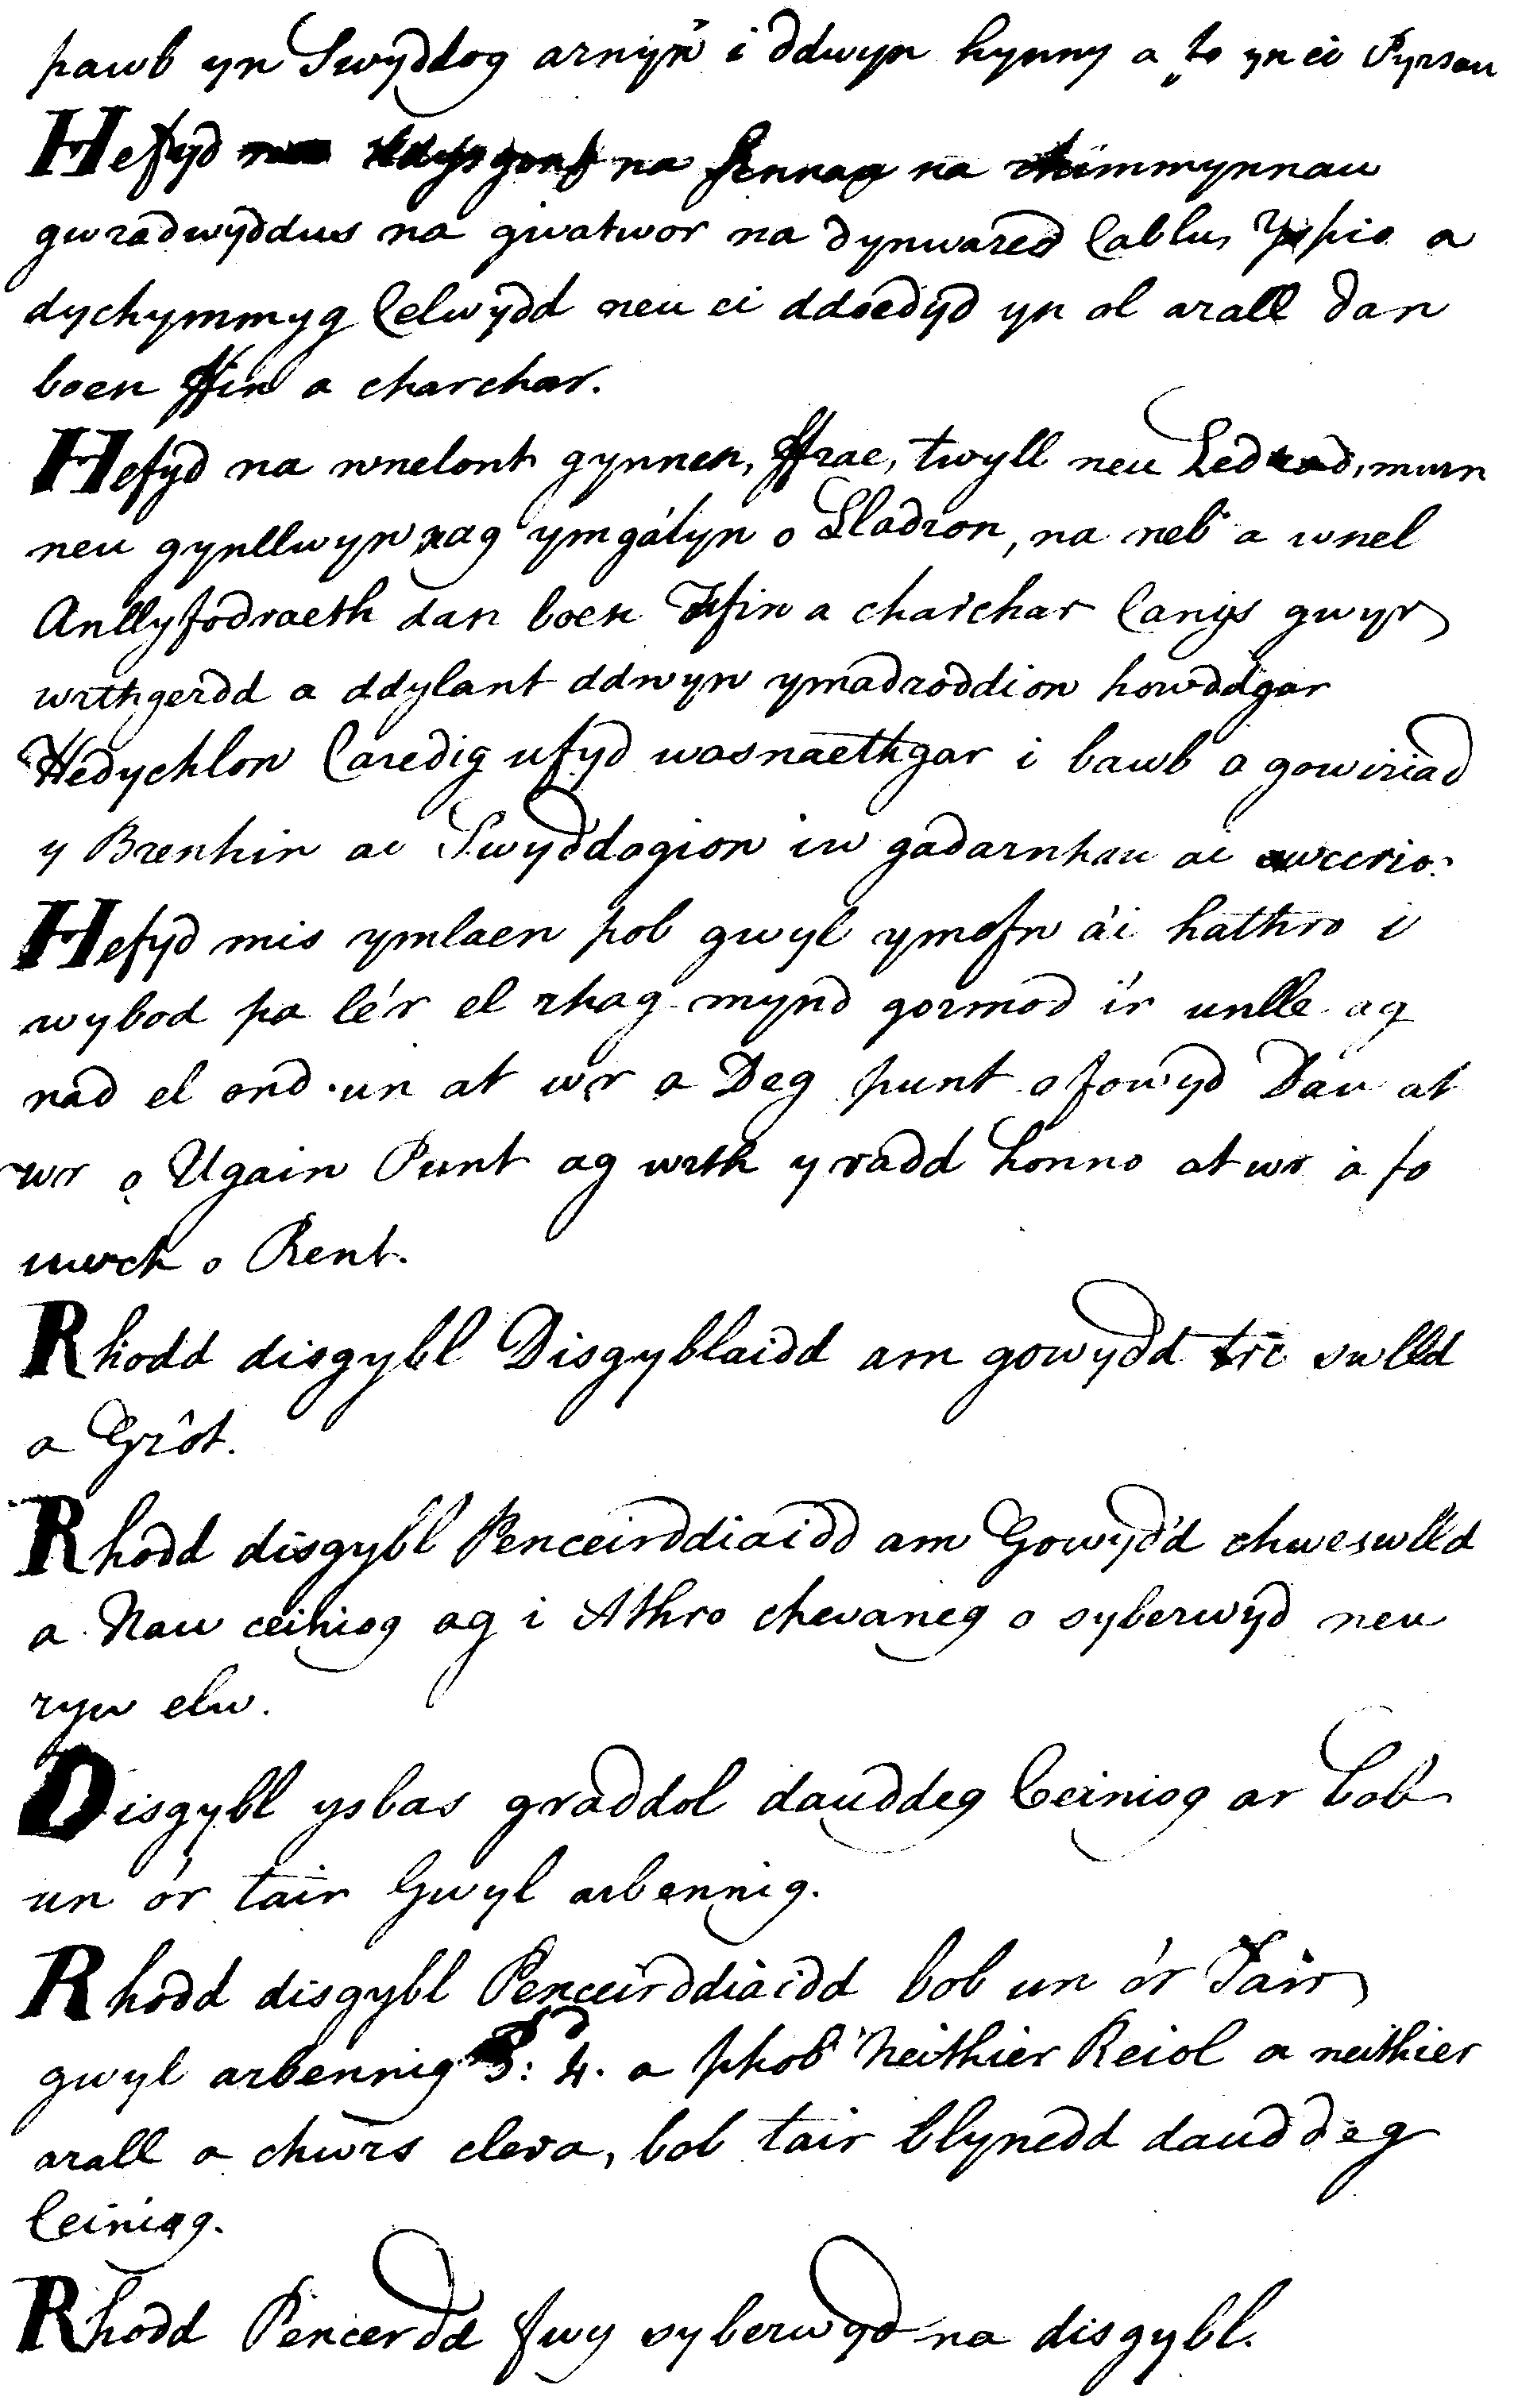 pawb yn Swyddog arnyn i ddwyn hynny a fo yn ei Pyrsau
Hefyd na ddysgont na sennag na rhimmynnau
gwradwyddus na gwatwor na dynwared Cablu, Yspio a
dychymmyg Celwydd neu ei ddoedyd yn ol arall dan
boen ffin a charchar.
Hefyd na wnelont gynnen, ffrae, twyll neu Ledrad, murn
neu gynllwyn rag ymgályn o Lladron, na neb a wnel
Anllyfodraeth dan boen ffin a charchar Canys gwyr
wrthgerdd a ddylant ddwyn ymadroddion howddgar
Hedychlon Caredig ufyd wasnaethgar i bawb o gowiriad
y Brenhin ai Swyddogion iw gadarnhau ai
Hefyd mis ymlaen pob gwyl ymofn ái hathro i
wybod pa lé'r el rhag mynd gormod i'r unlle ag
nad el ond un at wr o Deg punt o fowyd Dau at
wr o Ugain Punt ag wrth y radd honno at wr a fo
uwch o Rent.
Rhodd disgybl Disgyblaidd am gowydd tri swlld
a Grôt.
Rhodd disgybl Penceirddiaidd am Gowydd chweswlld
a Naw ceiniog ag i Athro chevaneg o syberwyd neu
ryw elw.
Disgybl ysbas graddol dauddeg Ceiniog ar bob
un ór tair Gwyl arbennig.
Rhodd disgybl Penceirddiaidd bob un ór Tair
gwyl arbennig 3: 4. a phob Neithier Reiol a neithier
arall a chwrs clera, bob tair blynedd dauddeg
Ceiniog.
Rhodd Pencerdd fwy syberwyd na disgybl.